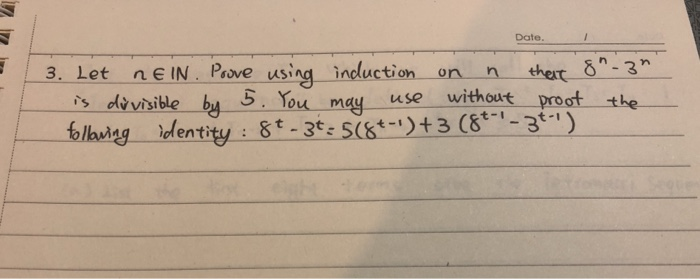 Date. /
3. Let n ∈ IN. Prove using induction on n that 8ⁿ - 3ⁿ
is divisible by 5. You may use without proof the
following identity : 8ᵗ - 3ᵗ = 5(8ᵗ⁻¹) + 3 (8ᵗ⁻¹ - 3ᵗ⁻¹)